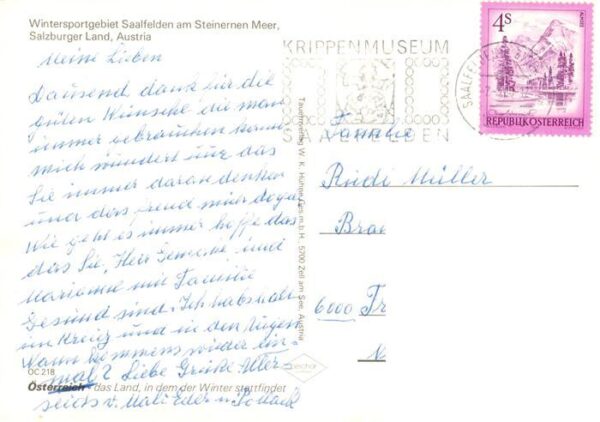 Wintersportgebiet Saalfelden am Steinernen Meer,
Salzburger Land, Austria
Meine Lieben
Tausend dank für die
guten Wünsche die man
immer gebrauchen kann
mich wundert nur das
Sie immer daran denken
und das freud mich sogar
Wie geht es immer hoffe das
das Sie, Herr und
Marianne mit Familie
Gesund sind. Ich habs halt
im Kreuz und in den Augen
Wann kommens wieder ein-
mal? Liebe Grüße Aller-
seits v. Mali Eder u. Pollack
ÖC 218
Österreich - das Land, in dem der Winter stattfindet
Tauernverlag W. K. Hühne Ges.m.b.H. 5700 Zell am See, Austria
KRIPPENMUSEUM
SAALFELDEN
SAALFELDEN
4S
REPUBLIK ÖSTERREICH
Familie
Rudi Müller
Brau
6000 Fr